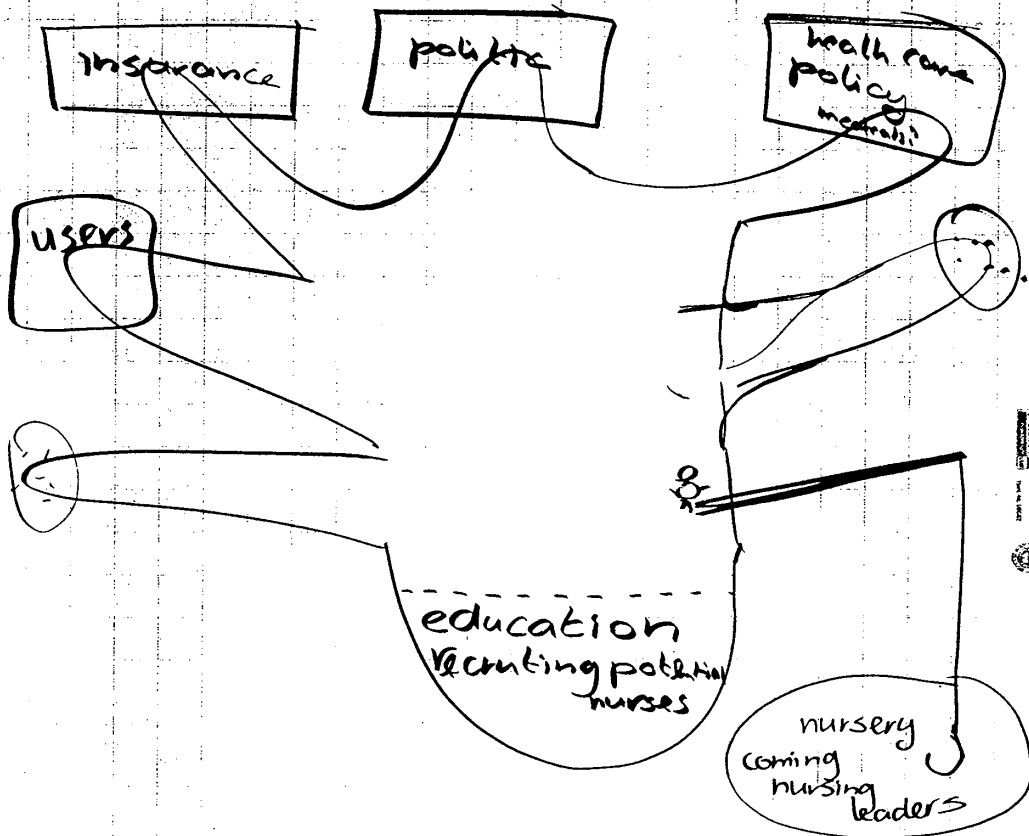 insurance
politic
health care
policy
users
education
recruting potential
nurses
nursery
coming
nursing
leaders